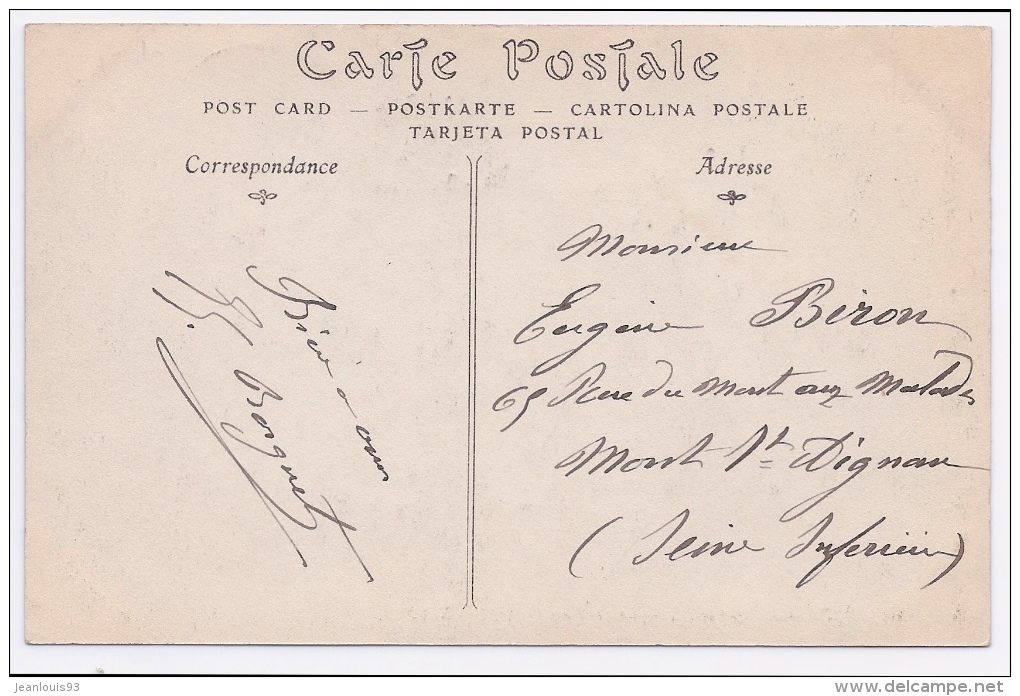 Carte Postale
POST CARD — POSTKARTE — CARTOLINA POSTALE
TARJETA POSTAL
Correspondance
Bien à vous
Bosquet
Adresse
Monsieur
Eugène Biron
65 Rue du Mont aux Malades
Mont St Aignan
(Seine Inferieure)
jeanlouis93
www.delcampe.net